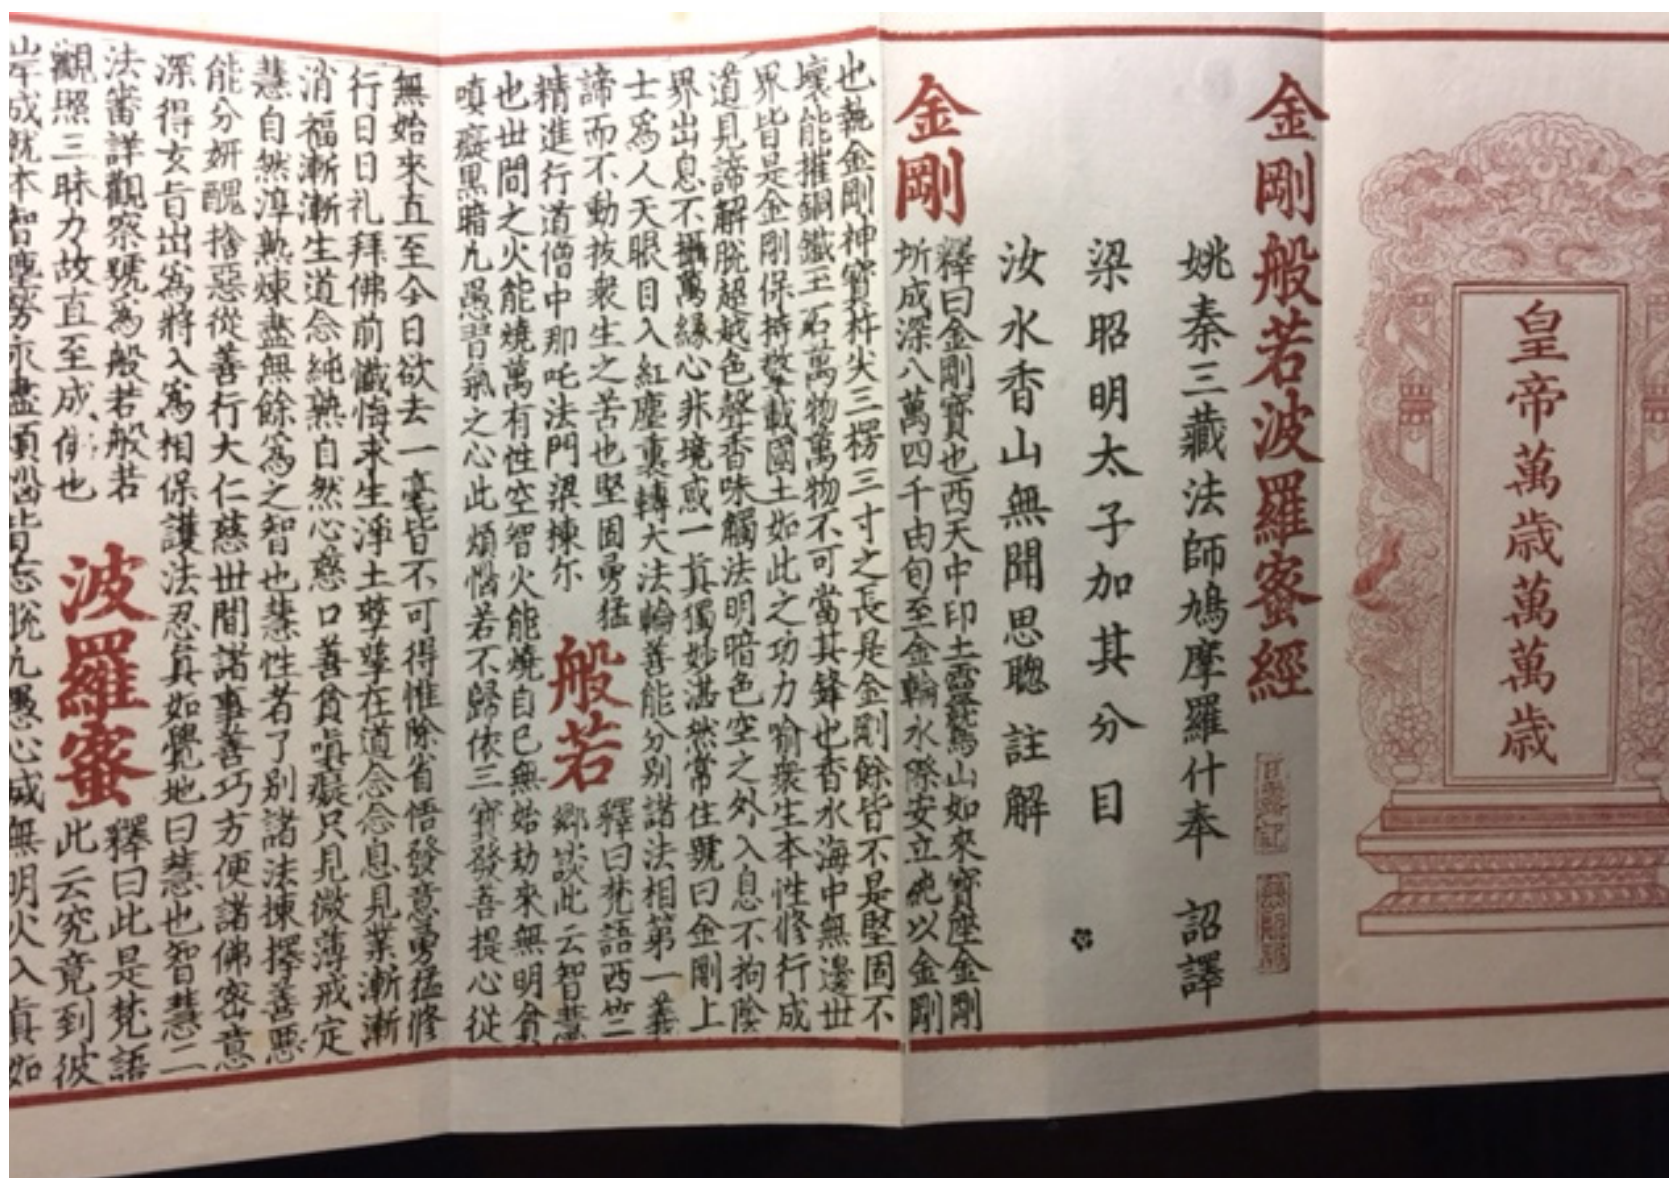 皇帝萬歳萬萬歳
金剛般若波羅蜜經
姚秦三藏法師鳩摩羅什奉 詔譯
梁昭明太子加其分目
汝水香山無聞思聰 註解
金剛
釋曰金剛寶也西天中印土靈鷲山如來寶座金剛
所成深八萬四千由旬至金輪水際安立 以金剛
也執金剛神寶杵尖三楞三寸之長是金剛餘皆不是堅固不
壞能摧銅鐵玉石萬物萬物不可當其鋒也香水海中無邊世
界皆是金剛保持擎載國土如此之功力喻衆生本性修行成
道見諦解脫超越色聲香味觸法明暗色空之外入息不拘陰
界出息不攝萬緣心非境惑一真獨妙湛然常住號曰金剛上
士爲人天眼目入紅塵裏轉大法輪善能分別諸法相第一義
諦而不動拔衆生之苦也堅固勇猛
精進行道僧中那吒法門梁棟尔
般若
釋曰梵語西竺
鄉談此云智慧
也世間之火能燒萬有性空智火能燒自己無始劫來無明貪
嗔癡黑暗凡愚習氣之心此煩惱若不歸依三寶發善提心從
無始來直至今日欲去一毫皆不可得惟除省悟發意勇猛修
行日日礼拜佛前懺悔求生淨土孳孳在道念念息見業漸漸
消福漸漸生道念純熟自然心慈口善貪嗔癡只見微薄戒定
慧自然淳熟煉盡無餘爲之智也慧性者了別諸法揀擇善惡
能分妍醜捨惡從善行大仁慈世間諸事善巧方便諸佛密意
深得玄旨出爲將入爲相保護法忍真如覺地曰慧也智慧二
法審詳觀察號爲般若般若
觀照三昧力故直至成佛也
波羅蜜
釋曰此是梵語
此云究竟到彼
岸成就本智塵勞永盡頂 皆忘脫凡愚心滅無明火入真如